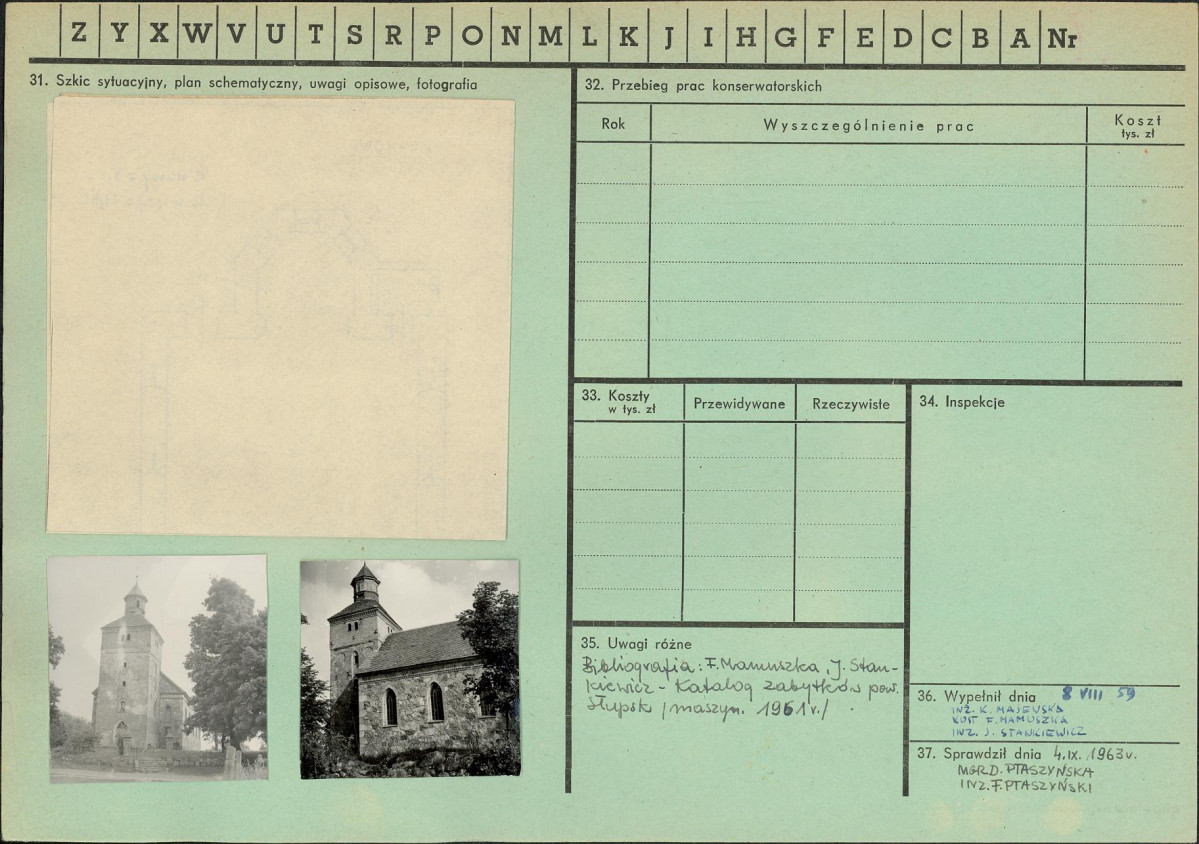 Z Y X W V U T S R P O N M L K J I H G F E D C B A Nr
31. Szkic sytuacyjny, plan schematyczny, uwagi opisowe, fotografia
32. Przebieg prac konserwatorskich
Rok
Wyszczególnienie prac
Koszt
tys. zł
33. Koszty
w tys. zł
Przewidywane
Rzeczywiste
34. Inspekcje
35. Uwagi różne
Bibliografia: F. Mamuszka, J. Stan-
kiewicz - Katalog zabytków pow.
Słupsk /maszyn. 1961r./
36. Wypełnił dnia 8 VIII 59
INŻ. K. MAJEWSKA
KUST F. MAMUSZKA
INŻ. J. STANKIEWICZ
37. Sprawdził dnia 4.IX.1963r.
MGR D. PTASZYŃSKA
INŻ. F. PTASZYŃSKI